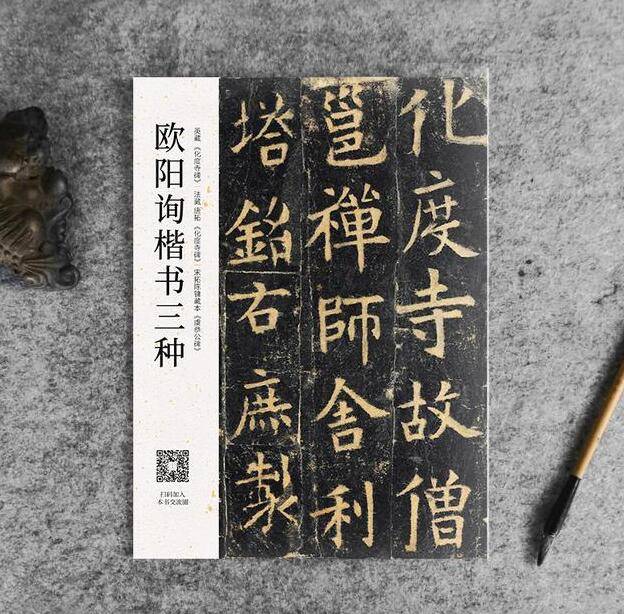 化度寺故僧
邕禪師舍利
塔銘右庶製
英藏《化度寺碑》 法藏唐拓《化度寺碑》 宋拓陈镛藏本《虞恭公碑》
欧阳询楷书三种
扫码加入
本书交流圈